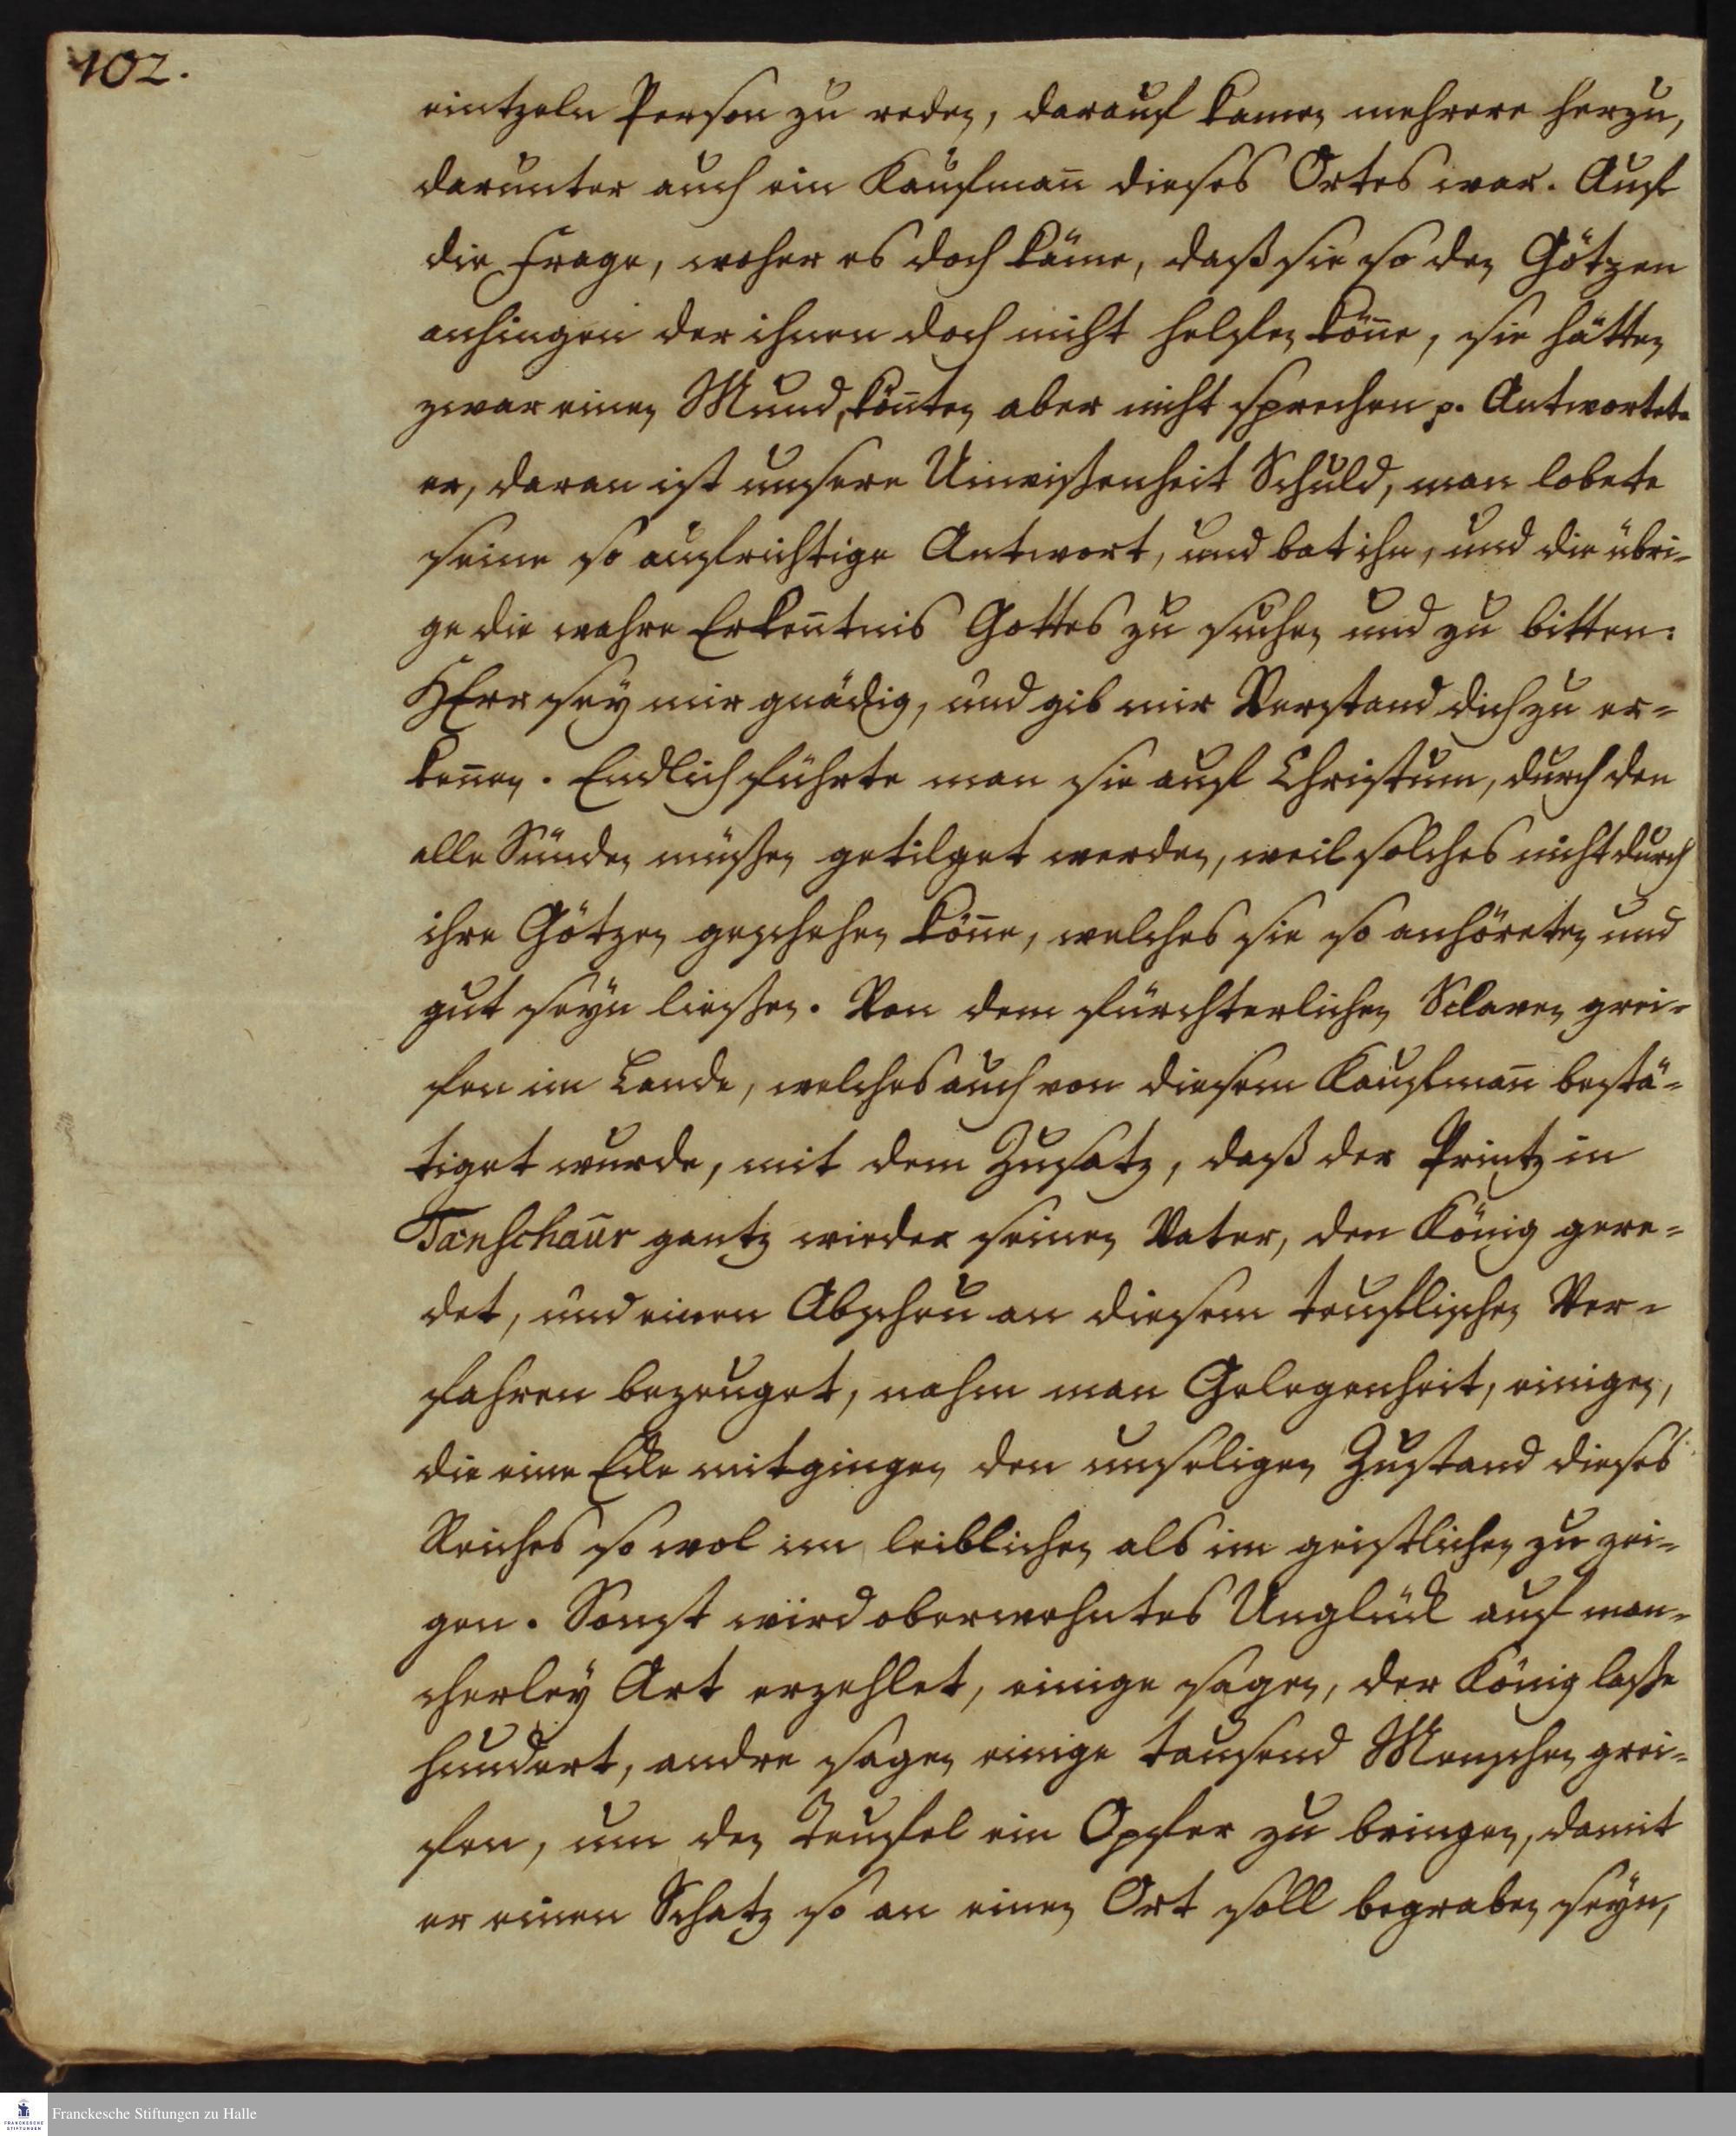 102.
eintzeln Person zu reden, darauf kamen mehrere herzu,
darunter auch ein Kaufman̄ dieses Ortes war. Auf
die Frage, woher es doch käme, daß sie so den Götzen
anhingen der ihnen doch nicht helfen kön̄e, sie hätten
zwar einen Mund, kön̄ten aber nicht sprechen p. Antwortete
er, daran ist unsere Unwißenheit Schuld, man lobete
seine so aufrichtige Antwort, und bat ihn, und die übri-
ge die wahre Erken̄tnis Gottes zu suchen und zu bitten:
HErr sey mir gnädig, und gib mir Verstand dich zu er-
ken̄en. Endlich führte man sie auf Christum, durch den
alle Sünden müßen getilget werden, weil solches nicht durch
ihre Götzen geschehen kön̄e, welches sie so anhöreten und
gut seyn ließen. Von dem fürchterlichen Sclaven grei-
fen im Lande, welches auch von diesem Kaufman̄ bestä-
tiget wurde, mit dem Zusatz, daß der Printz in
Tanschaur gantz wieder seinen Vater, den König gere-
det, und einen Abscheu an diesem teuflischen Ver-
fahren bezeuget, nahm man Gelegenheit, einigen,
die eine Ecke mitgingen den unseligen Zustand dieses
Reiches so wol im leiblichen als im geistlichen zu zei-
gen. Sonst wird oberwehntes Unglück auf man-
cherley Art erzehlet, einige sagen, der König laße
hundert, andre sagen einige tausend Menschen grei-
fen, um den Teufel ein Opfer zu bringen, damit
er einen Schatz so an einen Ort soll begraben seyn,
Franckesche Stiftungen zu Halle
FRANCKESCHE
STIFTUNGEN